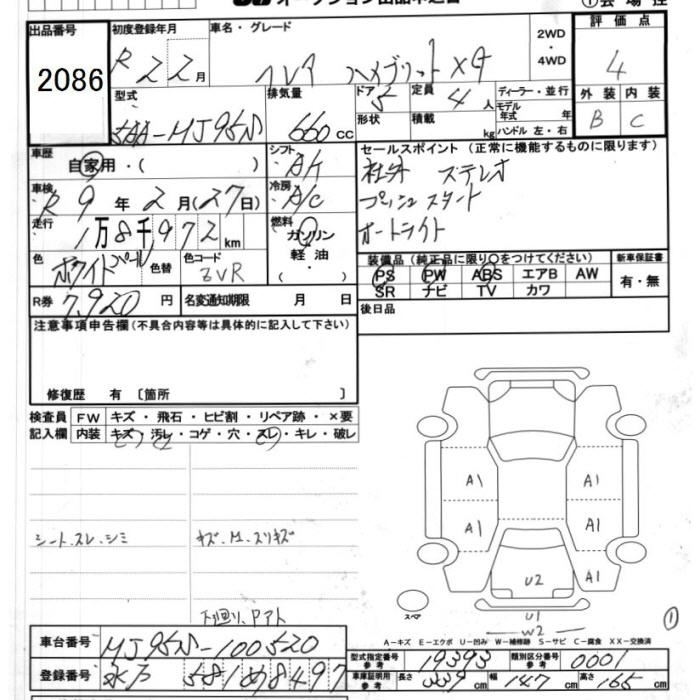 オークション出品申込書
①会場控
出品番号 2086
初度登録年月 R2 2月
車名・グレード フレア ハイブリット XG
2WD・4WD
評価点 4
型式 5AA-MJ95S
排気量 660cc
ドア 5 形状
定員 4人 積載 kg
ディーラー・並行
モデル年式 年
ハンドル 左・右
外装 B 内装 C
車歴 自家用・( )
シフト A/T
セールスポイント(正常に機能するものに限ります)
社外 ステレオ
プッシュスタート
オートライト
車検 R9年2月(27日)
冷房 A/C
走行 1万8千972km
燃料 ガソリン・軽油・
色 ホワイトパール 色替
色コード ZVR
装備品(純正品に限り○をつけてください)
PS PW ABS エアB AW
SR ナビ TV カワ
新車保証書 有・無
R券 7,920円
名変通知期限 月 日
後日品
注意事項申告欄(不具合内容等は具体的に記入して下さい)
修復歴 有 〔箇所 〕
検査員記入欄
FW キズ・飛石・ヒビ割・リペア跡・×要
内装 キズ・汚レ・コゲ・穴・スレ・キレ・破レ
シート.スレ.シミ
キズ.M.スリキズ
下廻り、Pアト
A1 A1
A1 A1
U2 A1
スペア
U1
W2
①
A-キズ E-エクボ U-凹み W-補修跡 S-サビ C-腐食 XX-交換済
車台番号 MJ95S-100520
登録番号 水戸 581 め 8497
型式指定番号 参考 19393
類別区分番号 参考 0001
車庫証明用 参考 長さ 339cm 幅 147cm 高さ 165cm